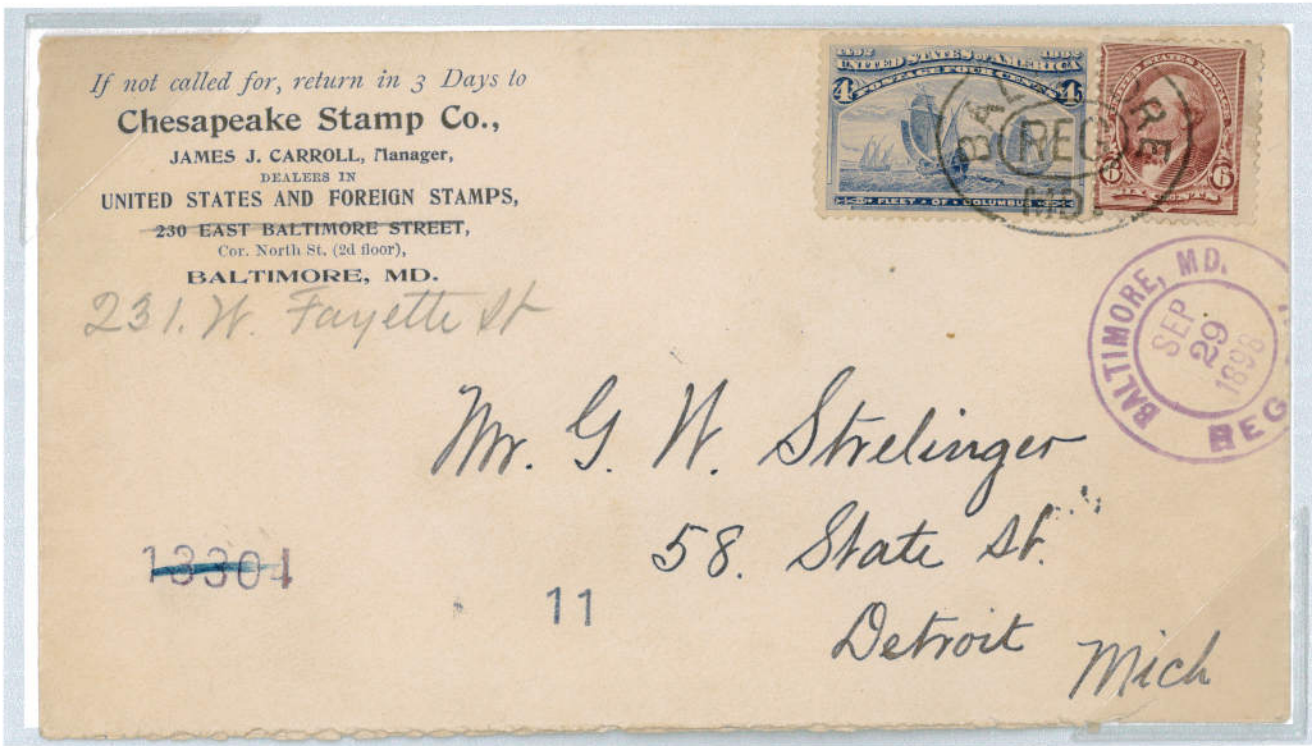 If not called for, return in 3 Days to
Chesapeake Stamp Co.,
JAMES J. CARROLL, Manager,
DEALERS IN
UNITED STATES AND FOREIGN STAMPS,
230 EAST BALTIMORE STREET,
Cor. North St. (2d floor),
BALTIMORE, MD.
231. W. Fayette St
1492 1892
UNITED STATES OF AMERICA
POSTAGE FOUR CENTS
4 4
FLEET OF COLUMBUS
UNITED STATES POSTAGE
6 6
SIX CENTS
BALTIMORE
REG
MD.
BALTIMORE, MD.
SEP
29
1898
REG
Mr. G. W. Strelinger
58. State St.
Detroit Mich
13304
11